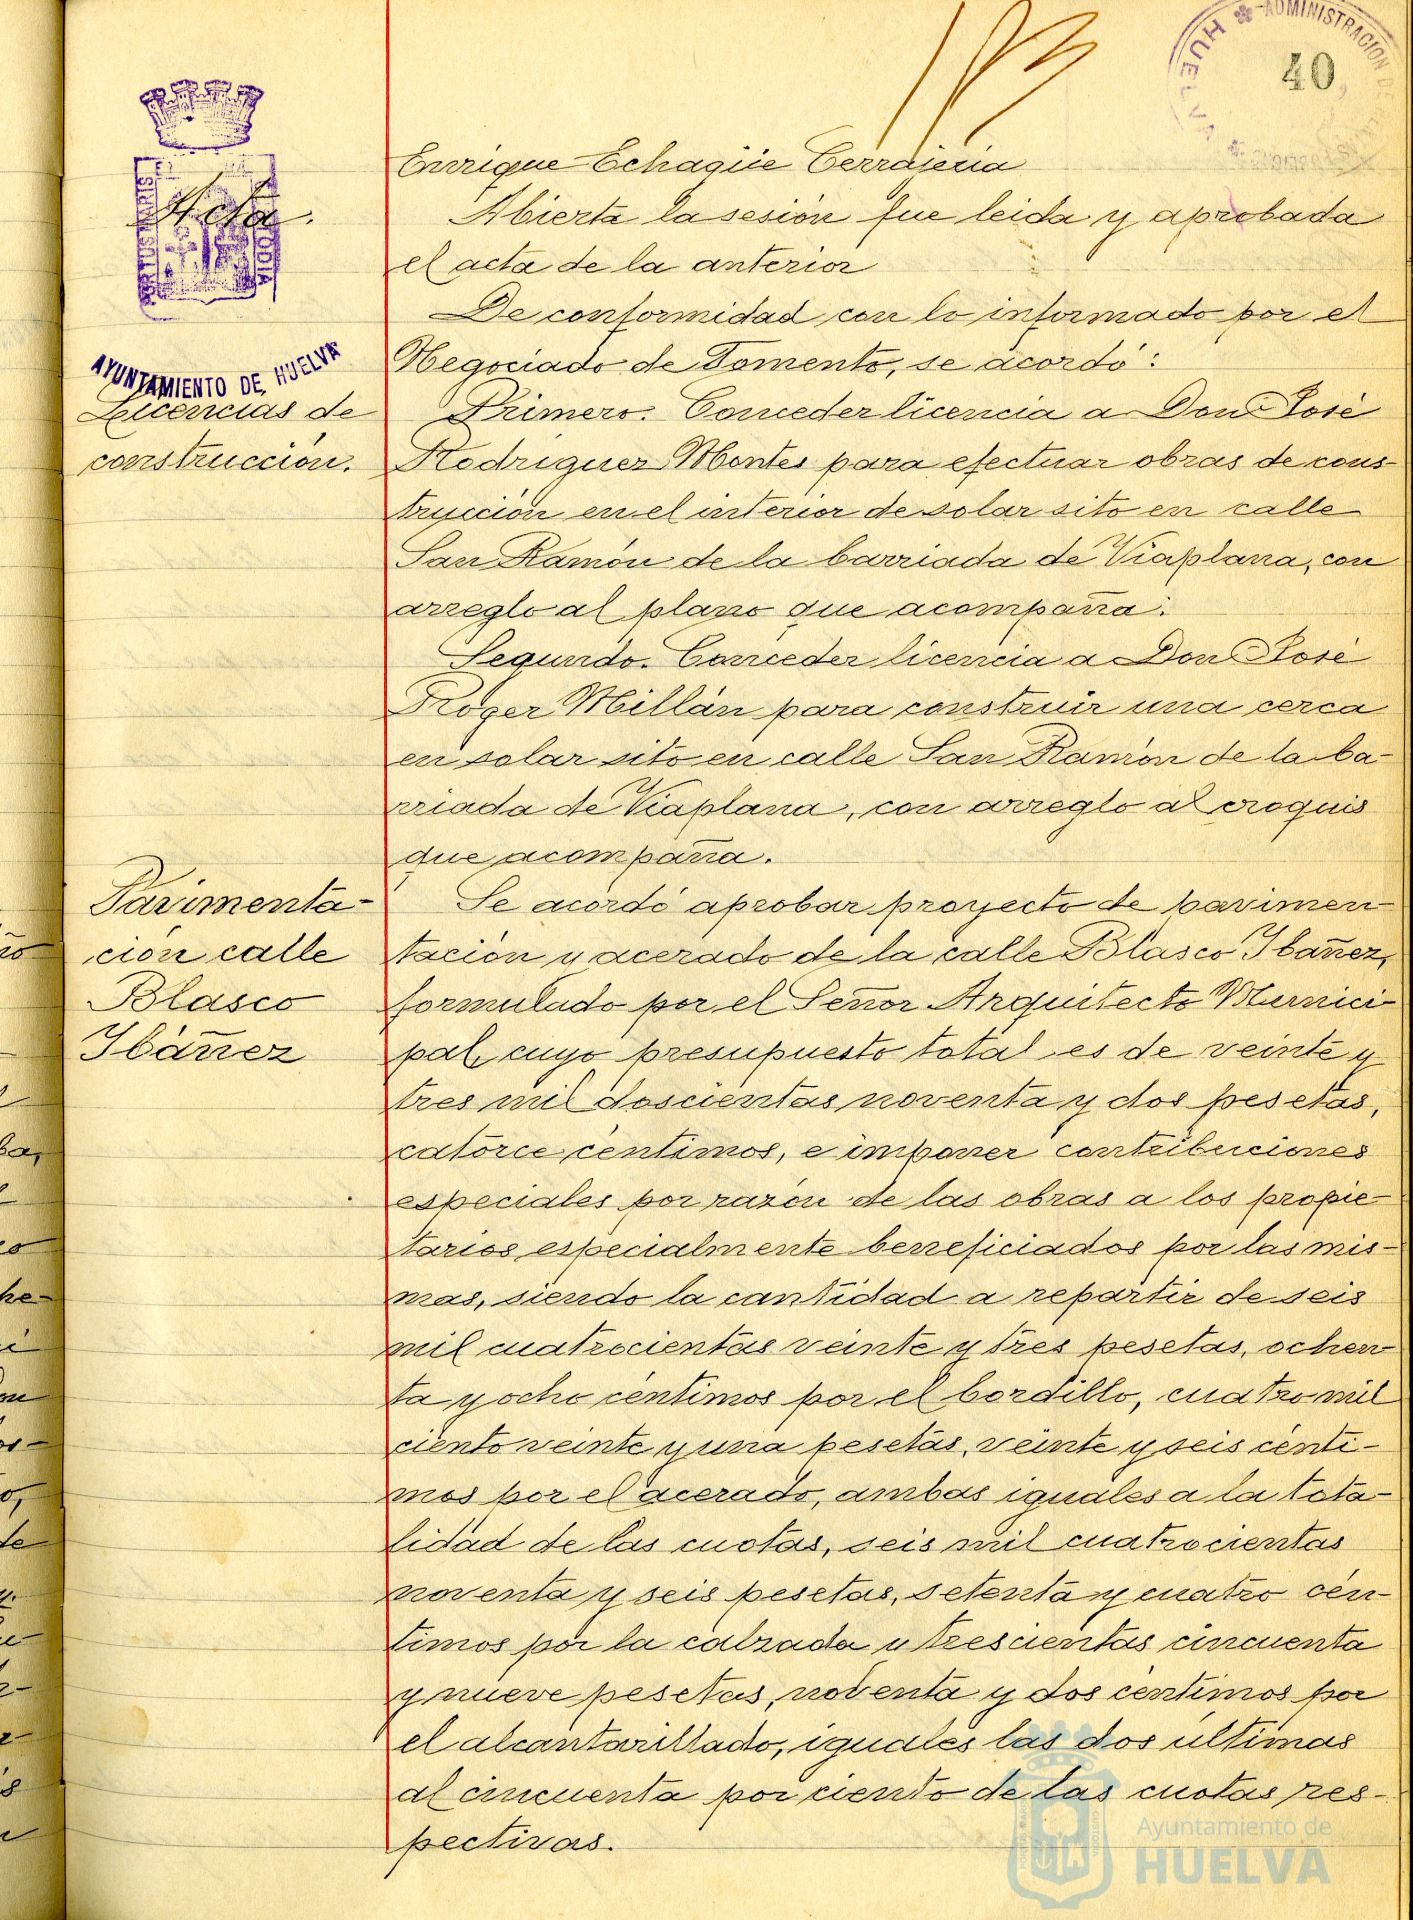 ADMINISTRACION DE
HUELVA
40
Enrique Echagüe Cerrajería
Acta.
PORTUS MARIS
CUSTODIA
Abierta la sesión fue leida y aprobada
el acta de la anterior
De conformidad con lo informado por el
Negociado de Fomento, se acordó:
AYUNTAMIENTO DE HUELVA
Licencias de
construcción.
Primero. Conceder licencia a Don José
Rodríguez Montes para efectuar obras de cons-
trucción en el interior de solar sito en calle
San Ramón de la barriada de Viaplana, con
arreglo al plano que acompaña.
Segundo. Conceder licencia a Don José
Roger Millán para construir una cerca
en solar sito en calle San Ramón de la ba-
rriada de Viaplana, con arreglo al croquis
que acompaña.
Pavimenta-
ción calle
Blasco
Ibáñez
Se acordó aprobar proyecto de pavimen-
tación y acerado de la calle Blasco Ibañez,
formulado por el Señor Arquitecto Munici-
pal, cuyo presupuesto total es de veinte y
tres mil doscientas noventa y dos pesetas,
catorce céntimos, e imponer contribuciones
especiales por razón de las obras a los propie-
tarios especialmente beneficiados por las mis-
mas, siendo la cantidad a repartir de seis
mil cuatrocientas veinte y tres pesetas, ochen-
ta y ocho céntimos por el bordillo, cuatro mil
ciento veinte y una pesetas, veinte y seis cénti-
mos por el acerado, ambas iguales a la tota-
lidad de las cuotas, seis mil cuatrocientas
noventa y seis pesetas, setenta y cuatro cén-
timos por la calzada y trescientas cincuenta
y nueve pesetas, noventa y dos céntimos por
el alcantarillado, iguales las dos últimas
al cincuenta por ciento de las cuotas res-
pectivas.
Ayuntamiento de
HUELVA